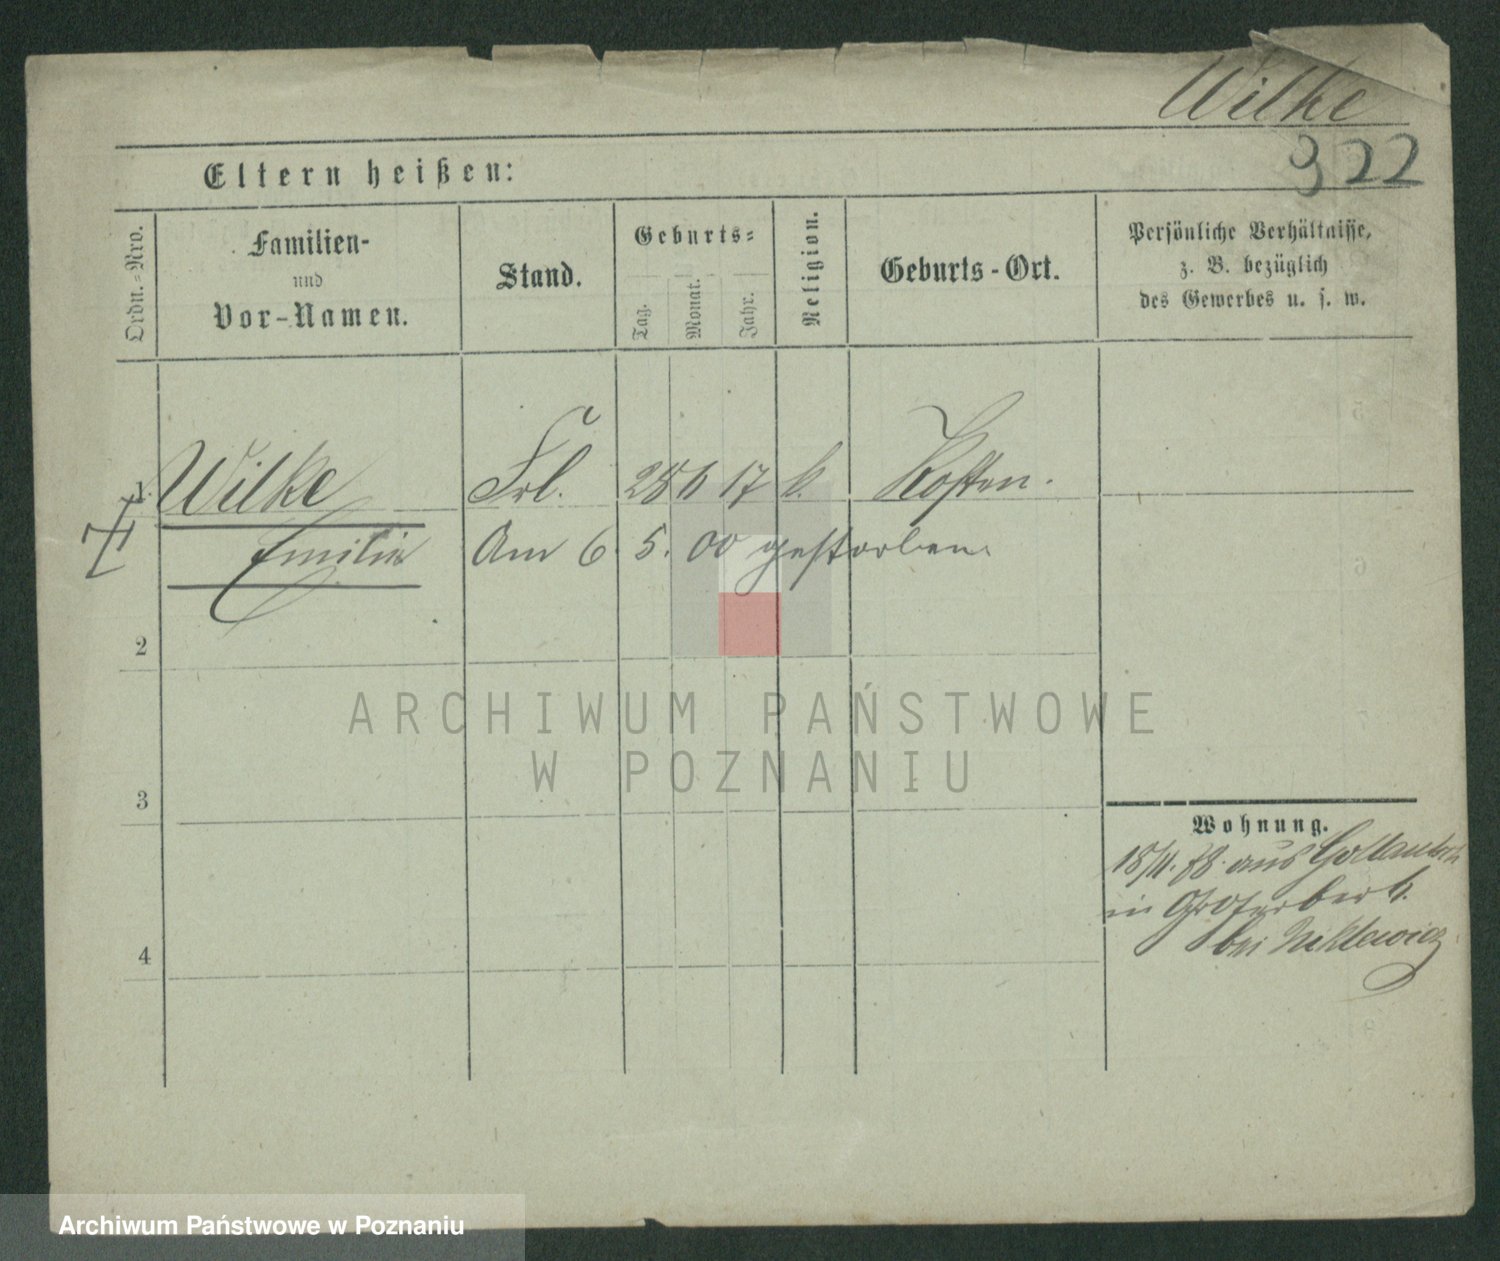 Wilke
922
Eltern heißen:
Ordn.-Nro.
Familien-
und
Vor-Namen.
Stand.
Geburts-
Tag.
Monat.
Jahr.
Religion.
Geburts-Ort.
Persönliche Verhältnisse,
z. B. bezüglich
des Gewerbes u. s. w.
1. Wilke Frl. 17 k. Kosten.
Emilie Am 6. 5. 00 gestorben.
2
3
4
Wohnung.
aus Gollantsch
in
bei
ARCHIWUM PAŃSTWOWE
W POZNANIU
Archiwum Państwowe w Poznaniu